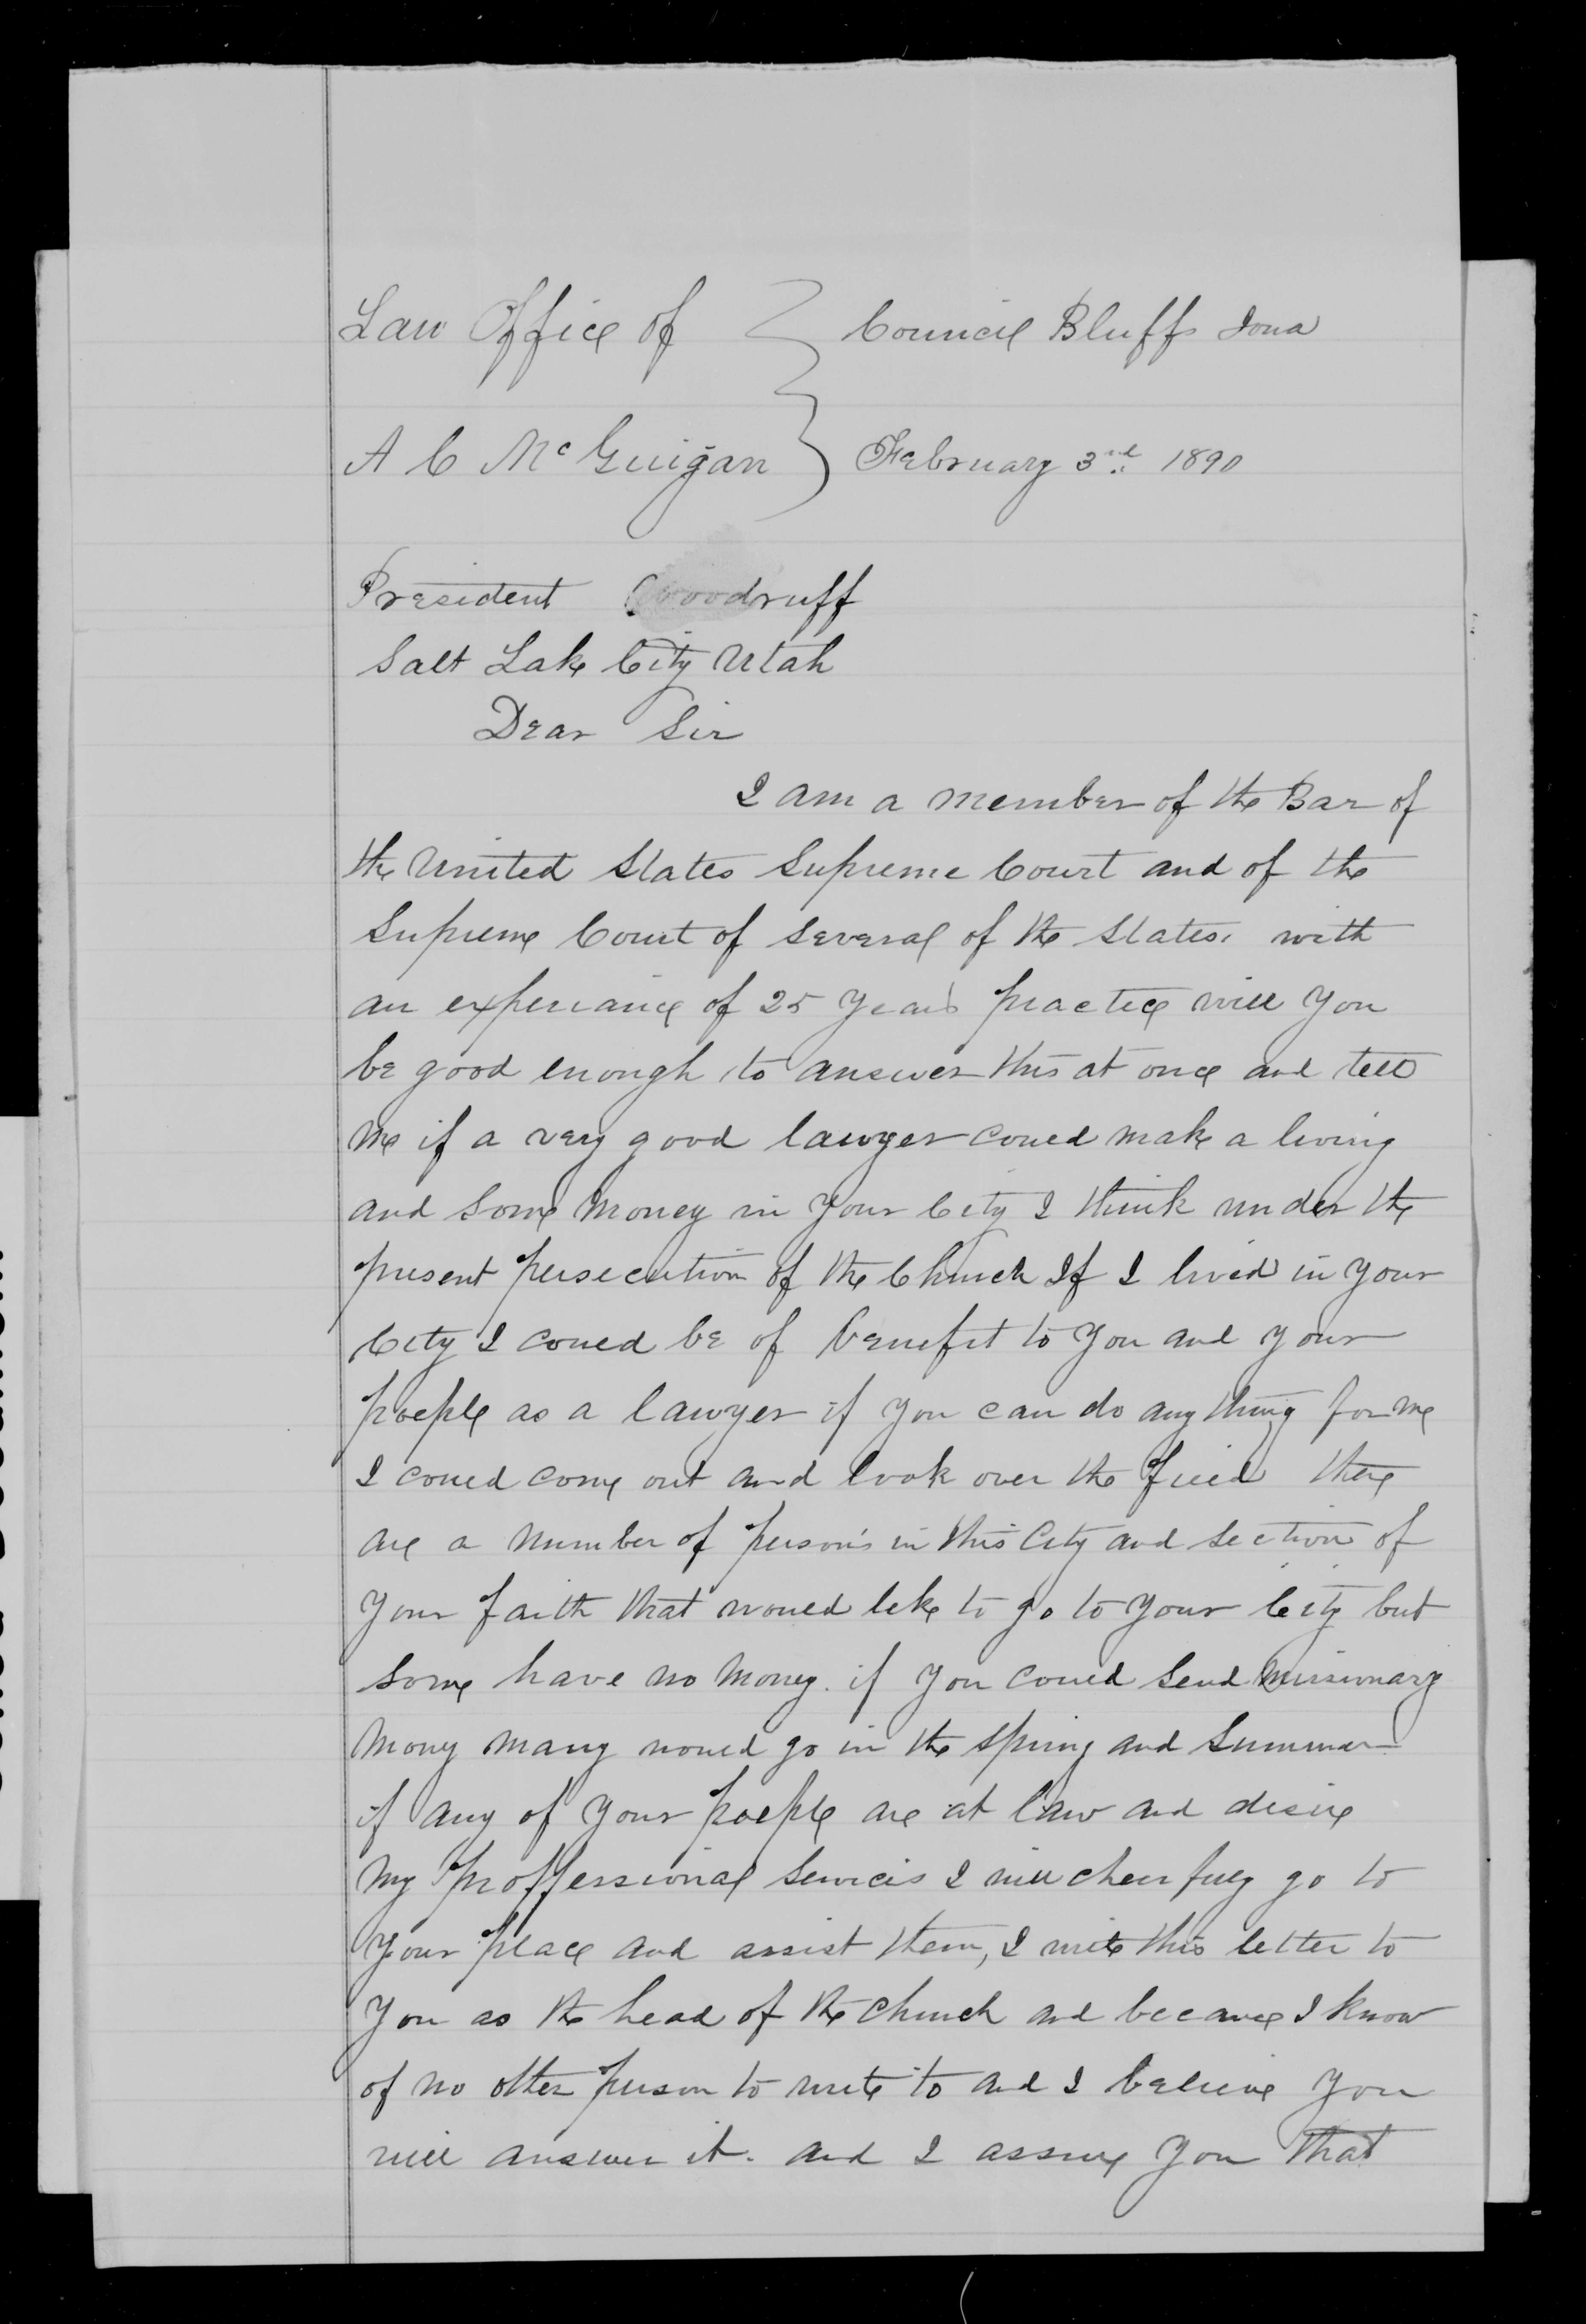 Law Office of } Council Bluffs Iowa
A C McGuigan } February 3rd 1890
President Woodruff
Salt Lake City Utah
Dear Sir
I am a member of the Bar of
the United States Supreme Court and of the
Supreme Court of Several of the States. with
an experiance of 25 years practice will you
be good enough to answer this at once and tell
me if a very good lawyer could make a living
and Some money in your City I think under the
present persecution of the Church If I lived in your
City I could be of benefit to you and your
poeple as a lawyer if you can do any thing for me
I could come out and look over the field there
are a number of person's in this City and section of
your faith that would like to go to your City but
Some have no money. if you could send missionary
mony many would go in the spring and Summer
if any of your poeple are at law and desire
my proffessional Services I will cheerfully go to
your place and assist them, I write this letter to
you as the head of the church and because I know
of no other person to write to and I believe you
will answer it. and I assure you that